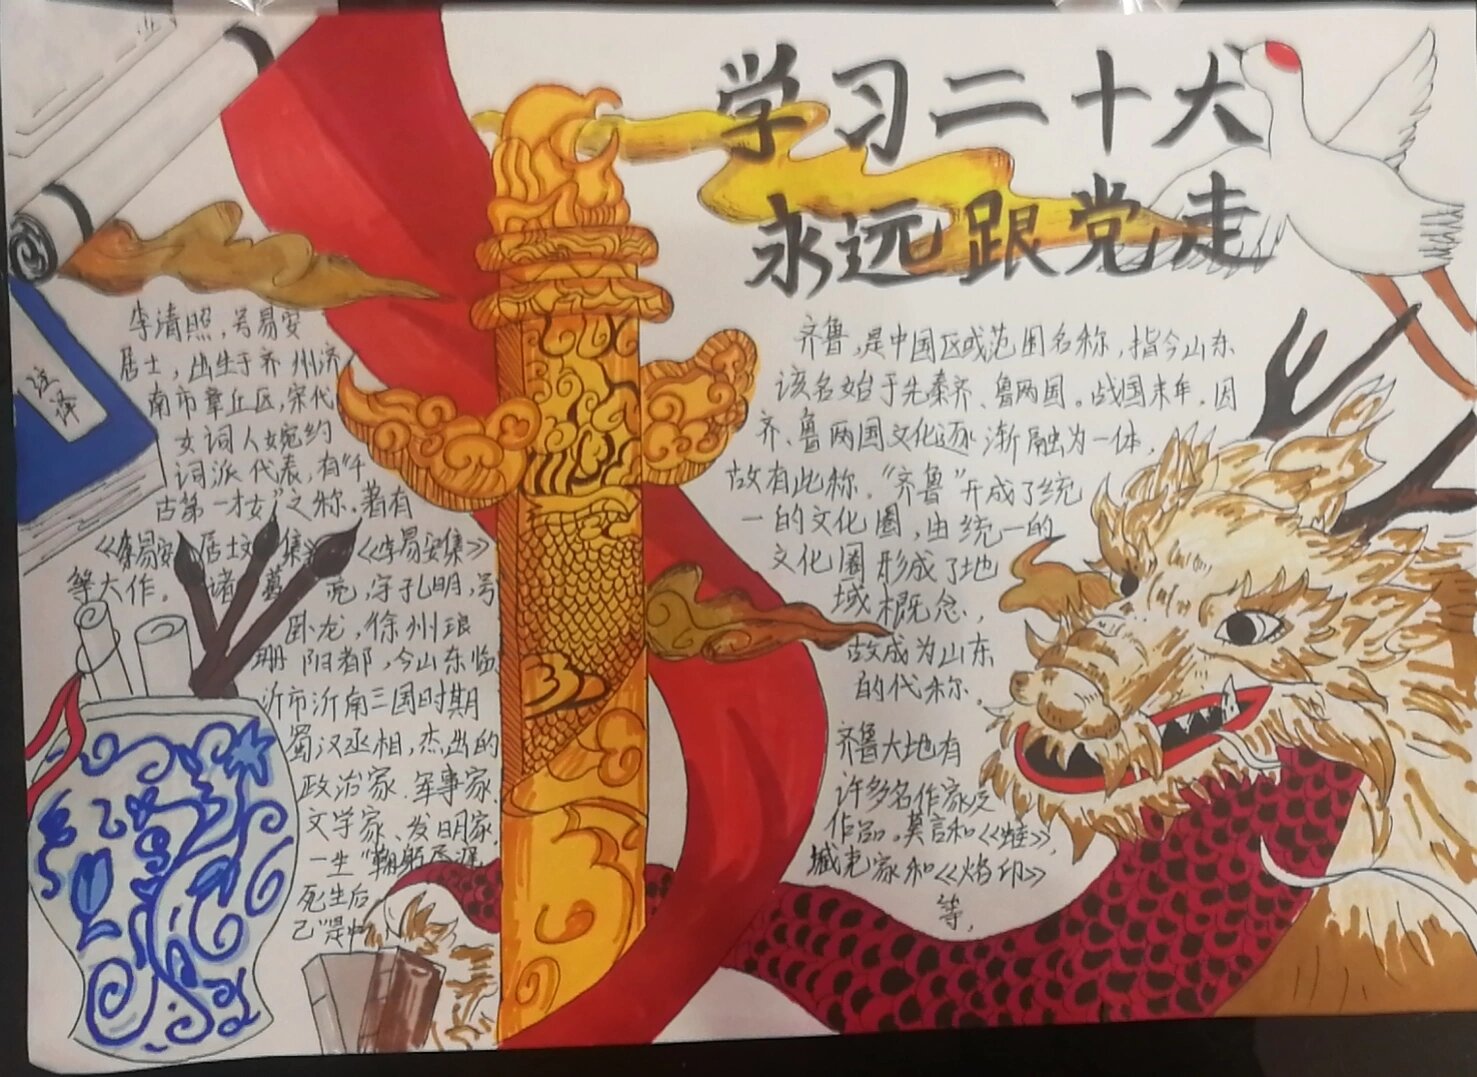 学习二十大
永远跟党走
注译
李清照，号易安
居士，出生于齐州济
南市章丘区，宋代
女词人婉约
词派代表，有“千
古第一才女”之称，著有
《李易安居士文集》《李易安集》
等大作。诸葛亮，字孔明，号
卧龙，徐州琅
琊阳都，今山东临
沂市沂南三国时期
蜀汉丞相，杰出的
政治家、军事家、
文学家、发明家，
一生“鞠躬尽瘁
死生后
已”是中
齐鲁，是中国区域范围名称，指今山东
该名始于先秦齐、鲁两国。战国末年，因
齐、鲁两国文化逐渐融为一体，
故有此称，“齐鲁”开成了统
一的文化圈，由统一的
文化圈形成了地
域概念，
故成为山东
的代称、
齐鲁大地有
许多名作家及
作品。莫言和《蛙》，
臧克家和《烙印》
等，